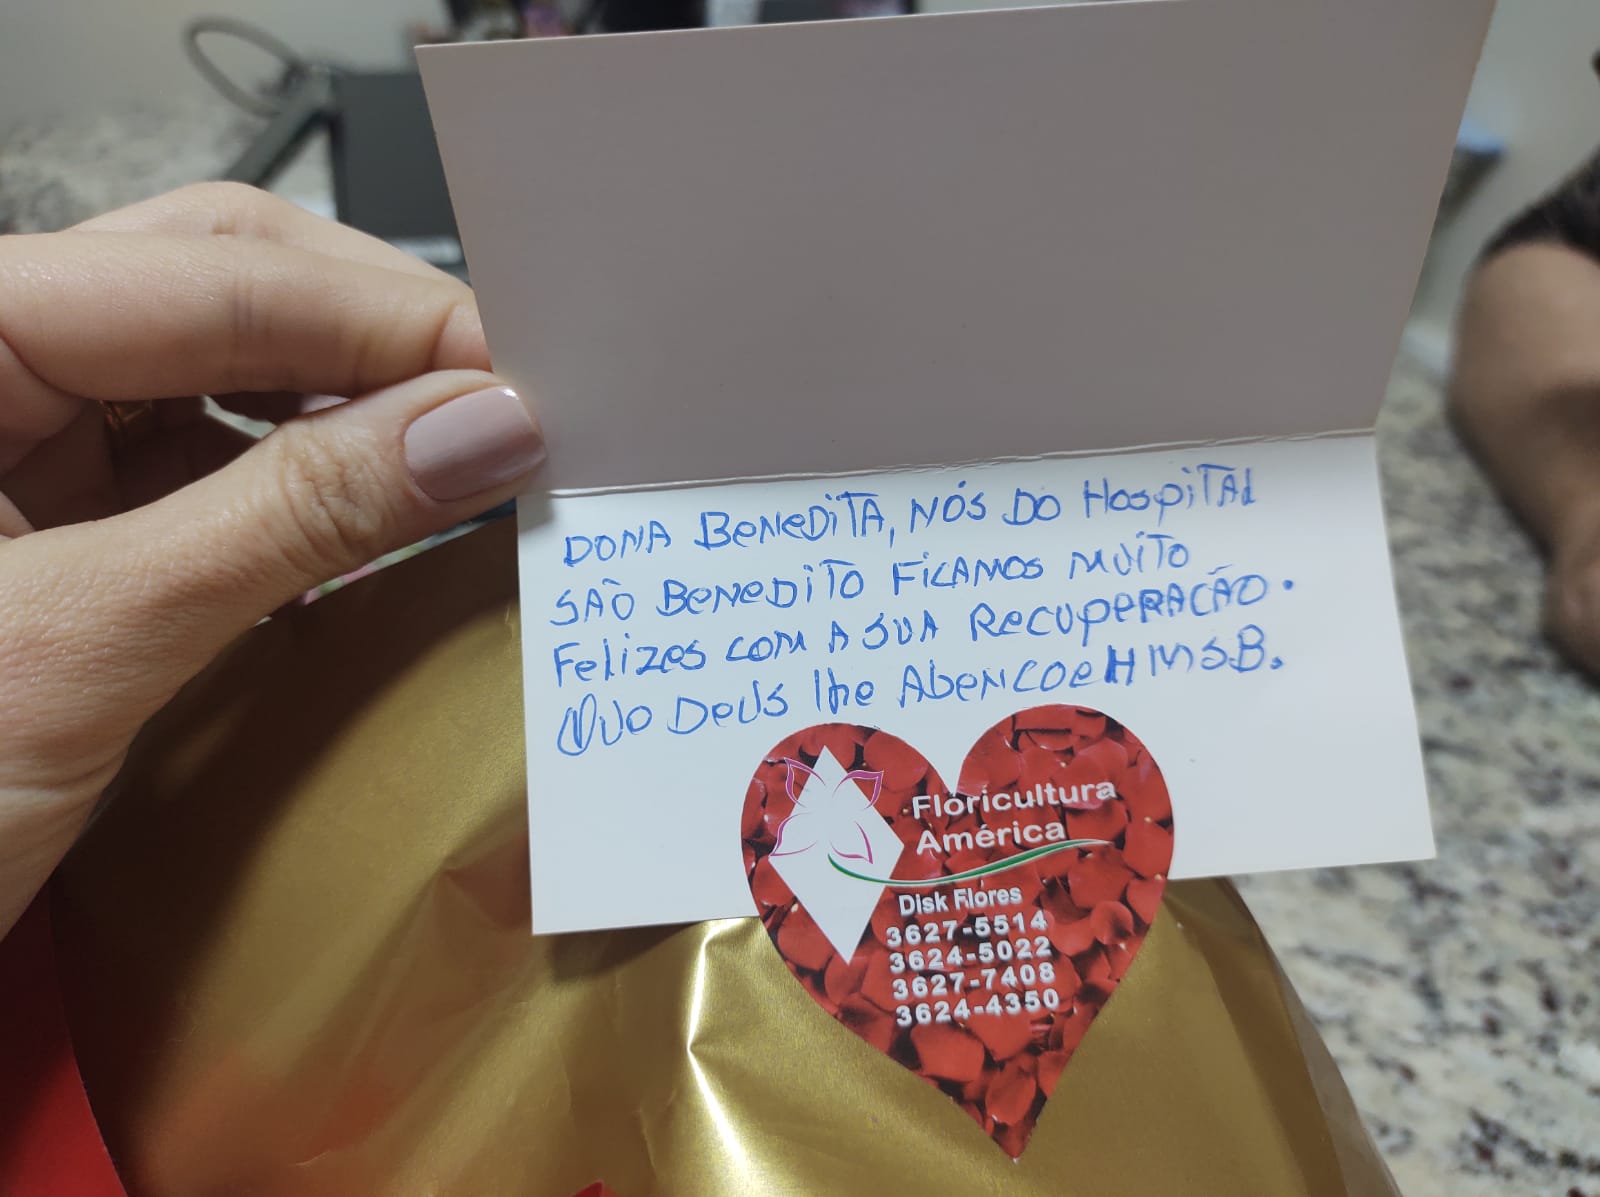 DONA BENEDITA, NÓS DO HOSPITAL
SÃO BENEDITO FICAMOS MUITO
FELIZES COM A SUA RECUPERACÃO.
QUO DEUS LHE ABENCOE HMSB.
Floricultura
América
Disk Flores
3627-5514
3624-5022
3627-7408
3624-4350